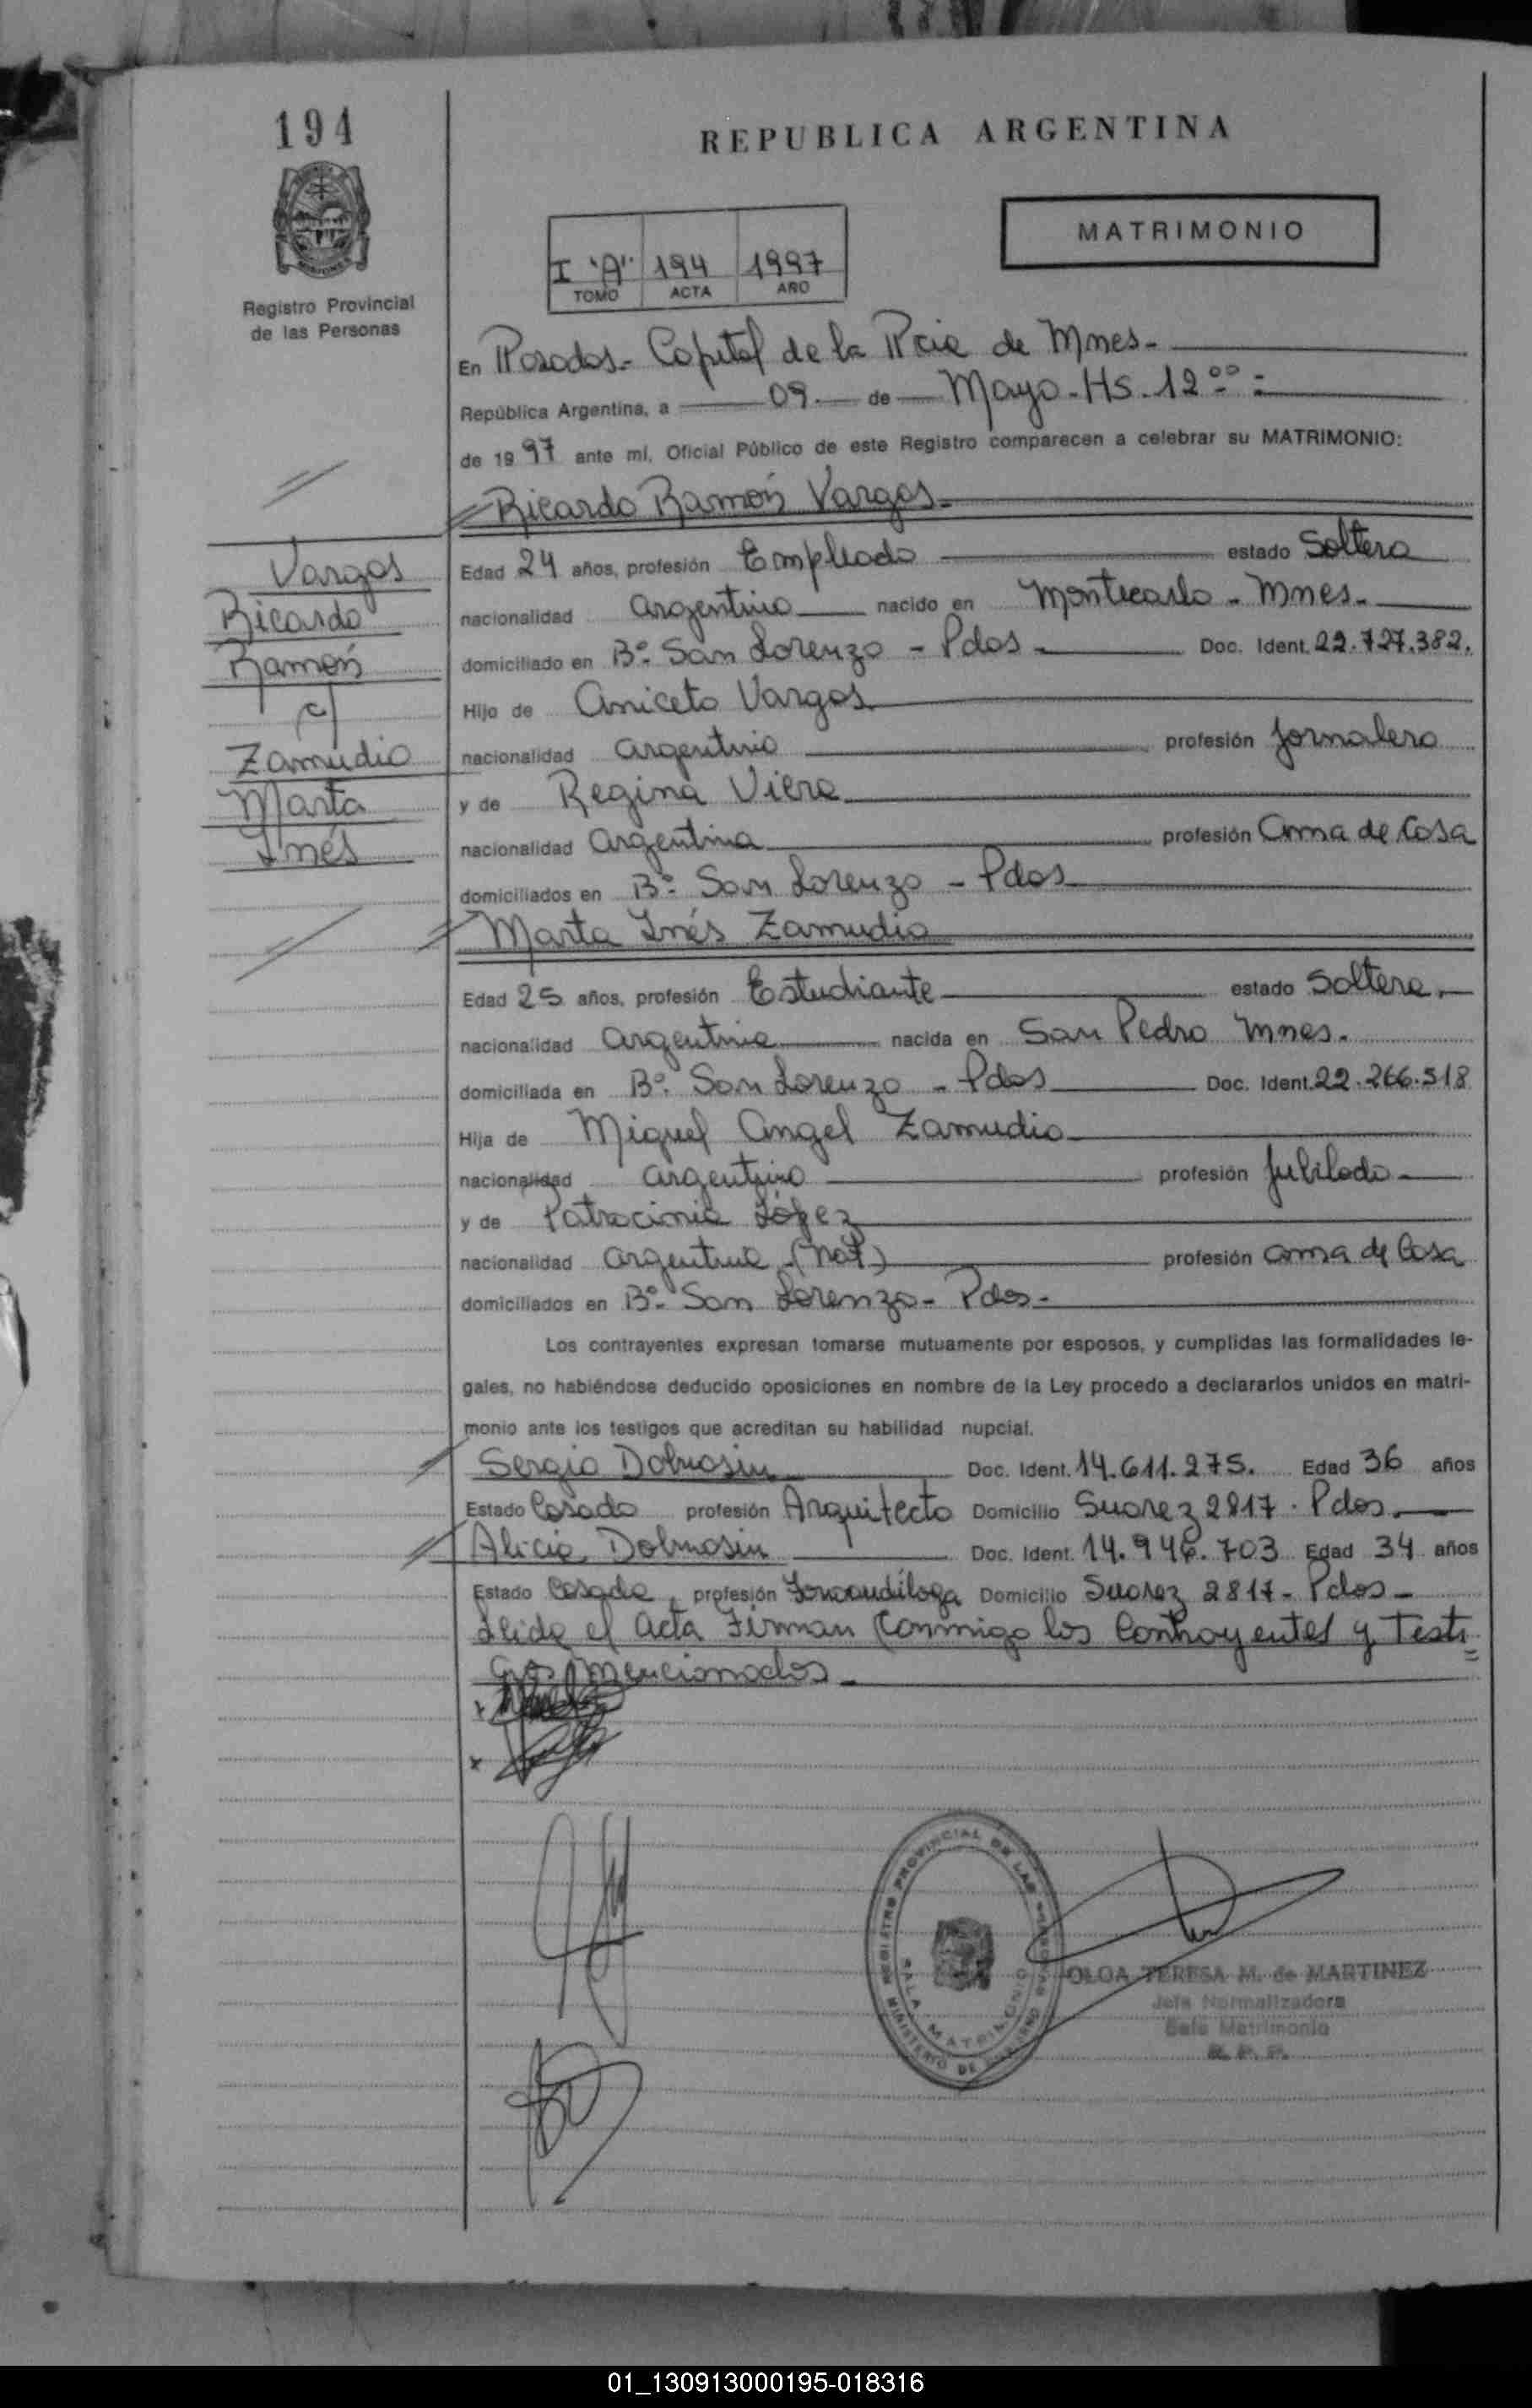 194
REPUBLICA ARGENTINA
MATRIMONIO
I "A" 194 1997
TOMO ACTA AÑO
Registro Provincial
de las Personas
En Posadas - Capital de la Pcia de Mnes -
República Argentina, a 09 de Mayo - Hs. 12⁰⁰ =
de 1997 ante mí, Oficial Público de este Registro comparecen a celebrar su MATRIMONIO:
Ricardo Ramón Vargas
Vargas
Ricardo
Ramón
c/
Zamudio
Marta
Inés
Edad 24 años, profesión Empleado estado Soltero
nacionalidad argentino nacido en Montecarlo - Mnes -
domiciliado en Bº San Lorenzo - Pdas - Doc. Ident. 22.727.382.
Hijo de Aniceto Vargas
nacionalidad argentino profesión Jornalero
y de Regina Viera
nacionalidad argentina profesión ama de Casa
domiciliados en Bº San Lorenzo - Pdas
Marta Inés Zamudio
Edad 25 años, profesión Estudiante estado Soltera.
nacionalidad argentina nacida en San Pedro Mnes.
domiciliada en Bº San Lorenzo - Pdas Doc. Ident. 22.266.518
Hija de Miguel Angel Zamudio
nacionalidad argentino profesión Jubilado
y de Patrocinia López
nacionalidad argentina (Nat) profesión ama de Casa
domiciliados en Bº San Lorenzo - Pdas -
Los contrayentes expresan tomarse mutuamente por esposos, y cumplidas las formalidades le-
gales, no habiéndose deducido oposiciones en nombre de la Ley procedo a declararlos unidos en matri-
monio ante los testigos que acreditan su habilidad nupcial.
Sergio Dobrusin Doc. Ident. 14.611.275. Edad 36 años
Estado Casado profesión Arquitecto Domicilio Suarez 2817 - Pdas.
Alicia Dobrusin Doc. Ident. 14.946.703 Edad 34 años
Estado Casada profesión Fonoaudióloga Domicilio Suarez 2817 - Pdas -
Leida el acta Firman Conmigo los Contrayentes y Testi=
gos Mencionados -
REGISTRO PROVINCIAL DE LAS PERSONAS
SALA MATRIMONIO
MINISTERIO DE GOBIERNO
OLGA TERESA M. de MARTINEZ
Jefa Normalizadora
Sala Matrimonio
R. P. P.
01_130913000195-018316